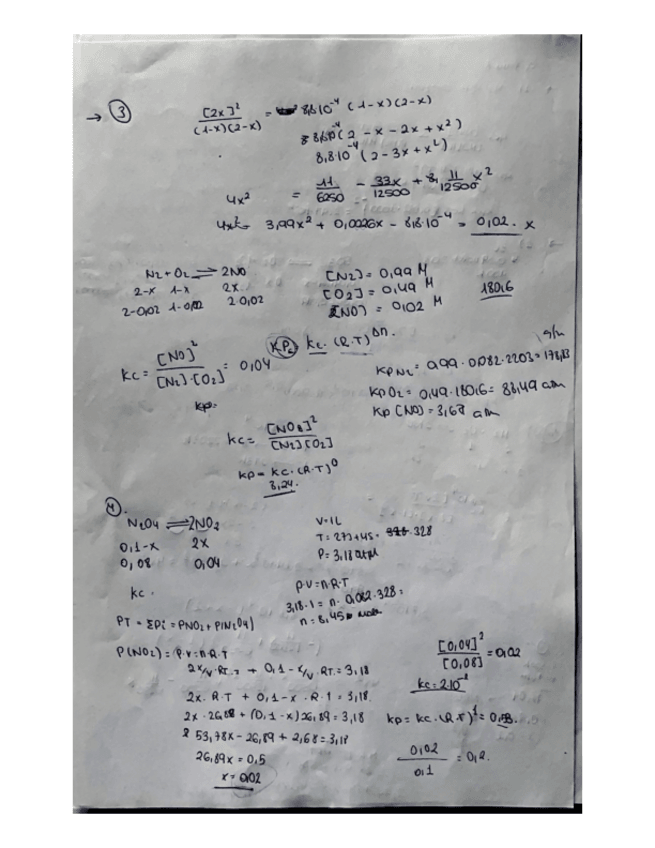 → ③
[2x]² / (1-x)(2-x) = 8,8·10⁻⁴ (1-x)(2-x)
8,8·10⁻⁴(2 - x - 2x + x²)
8,8·10⁻⁴ (2 - 3x + x²)
4x² = 11/6250 - 33x/12500 + 11/12500 x²
3,99x² + 0,0026x - 8,8·10⁻⁴ = 0,02. x
N2 + O2 ⇌ 2NO
2-x 1-x 2x
2-0,02 1-0,02 2·0,02
[N2] = 0,99 M
[O2] = 0,49 M
[NO] = 0,02 M
180,6
Kc = [NO]² / [N2]·[O2] = 0,04
KPc = Kc · (R·T)^Δn.
KpN2 = 0,99 · 0,082 · 2203 =
KpO2 = 0,49 · 180,6 = 88,49 atm
Kp (NO) = 3,68 atm
Kp=
Kc = / [N2][O2]
Kp = Kc · (R·T)⁰
3,24.
④.
N2O4 ⇌ 2NO2
0,1-x 2x
0,08 0,04
Kc .
V=1L
T= 273+45 = 328
P= 3,18 atm
P·V=n·R·T
3,18·1 = n · 0,082·328 =
PT = ΣPi = PNO2 + P(N2O4)
P(NO2) = P·V=n·R·T
2x/V · RT + 0,1 - x/V · RT = 3,18
2x · R·T + 0,1-x · R·T = 3,18
2x · 26,89 + (0,1-x) 26,89 = 3,18
53,78x - 26,89 + 2,68 = 3,18
26,89x = 0,5
x = 0,02
[0,04]² / [0,08] = 0,02
Kc = 2·10⁻²
Kp = Kc · (R·T)¹ =
0,02 / 0,1 = 0,2.